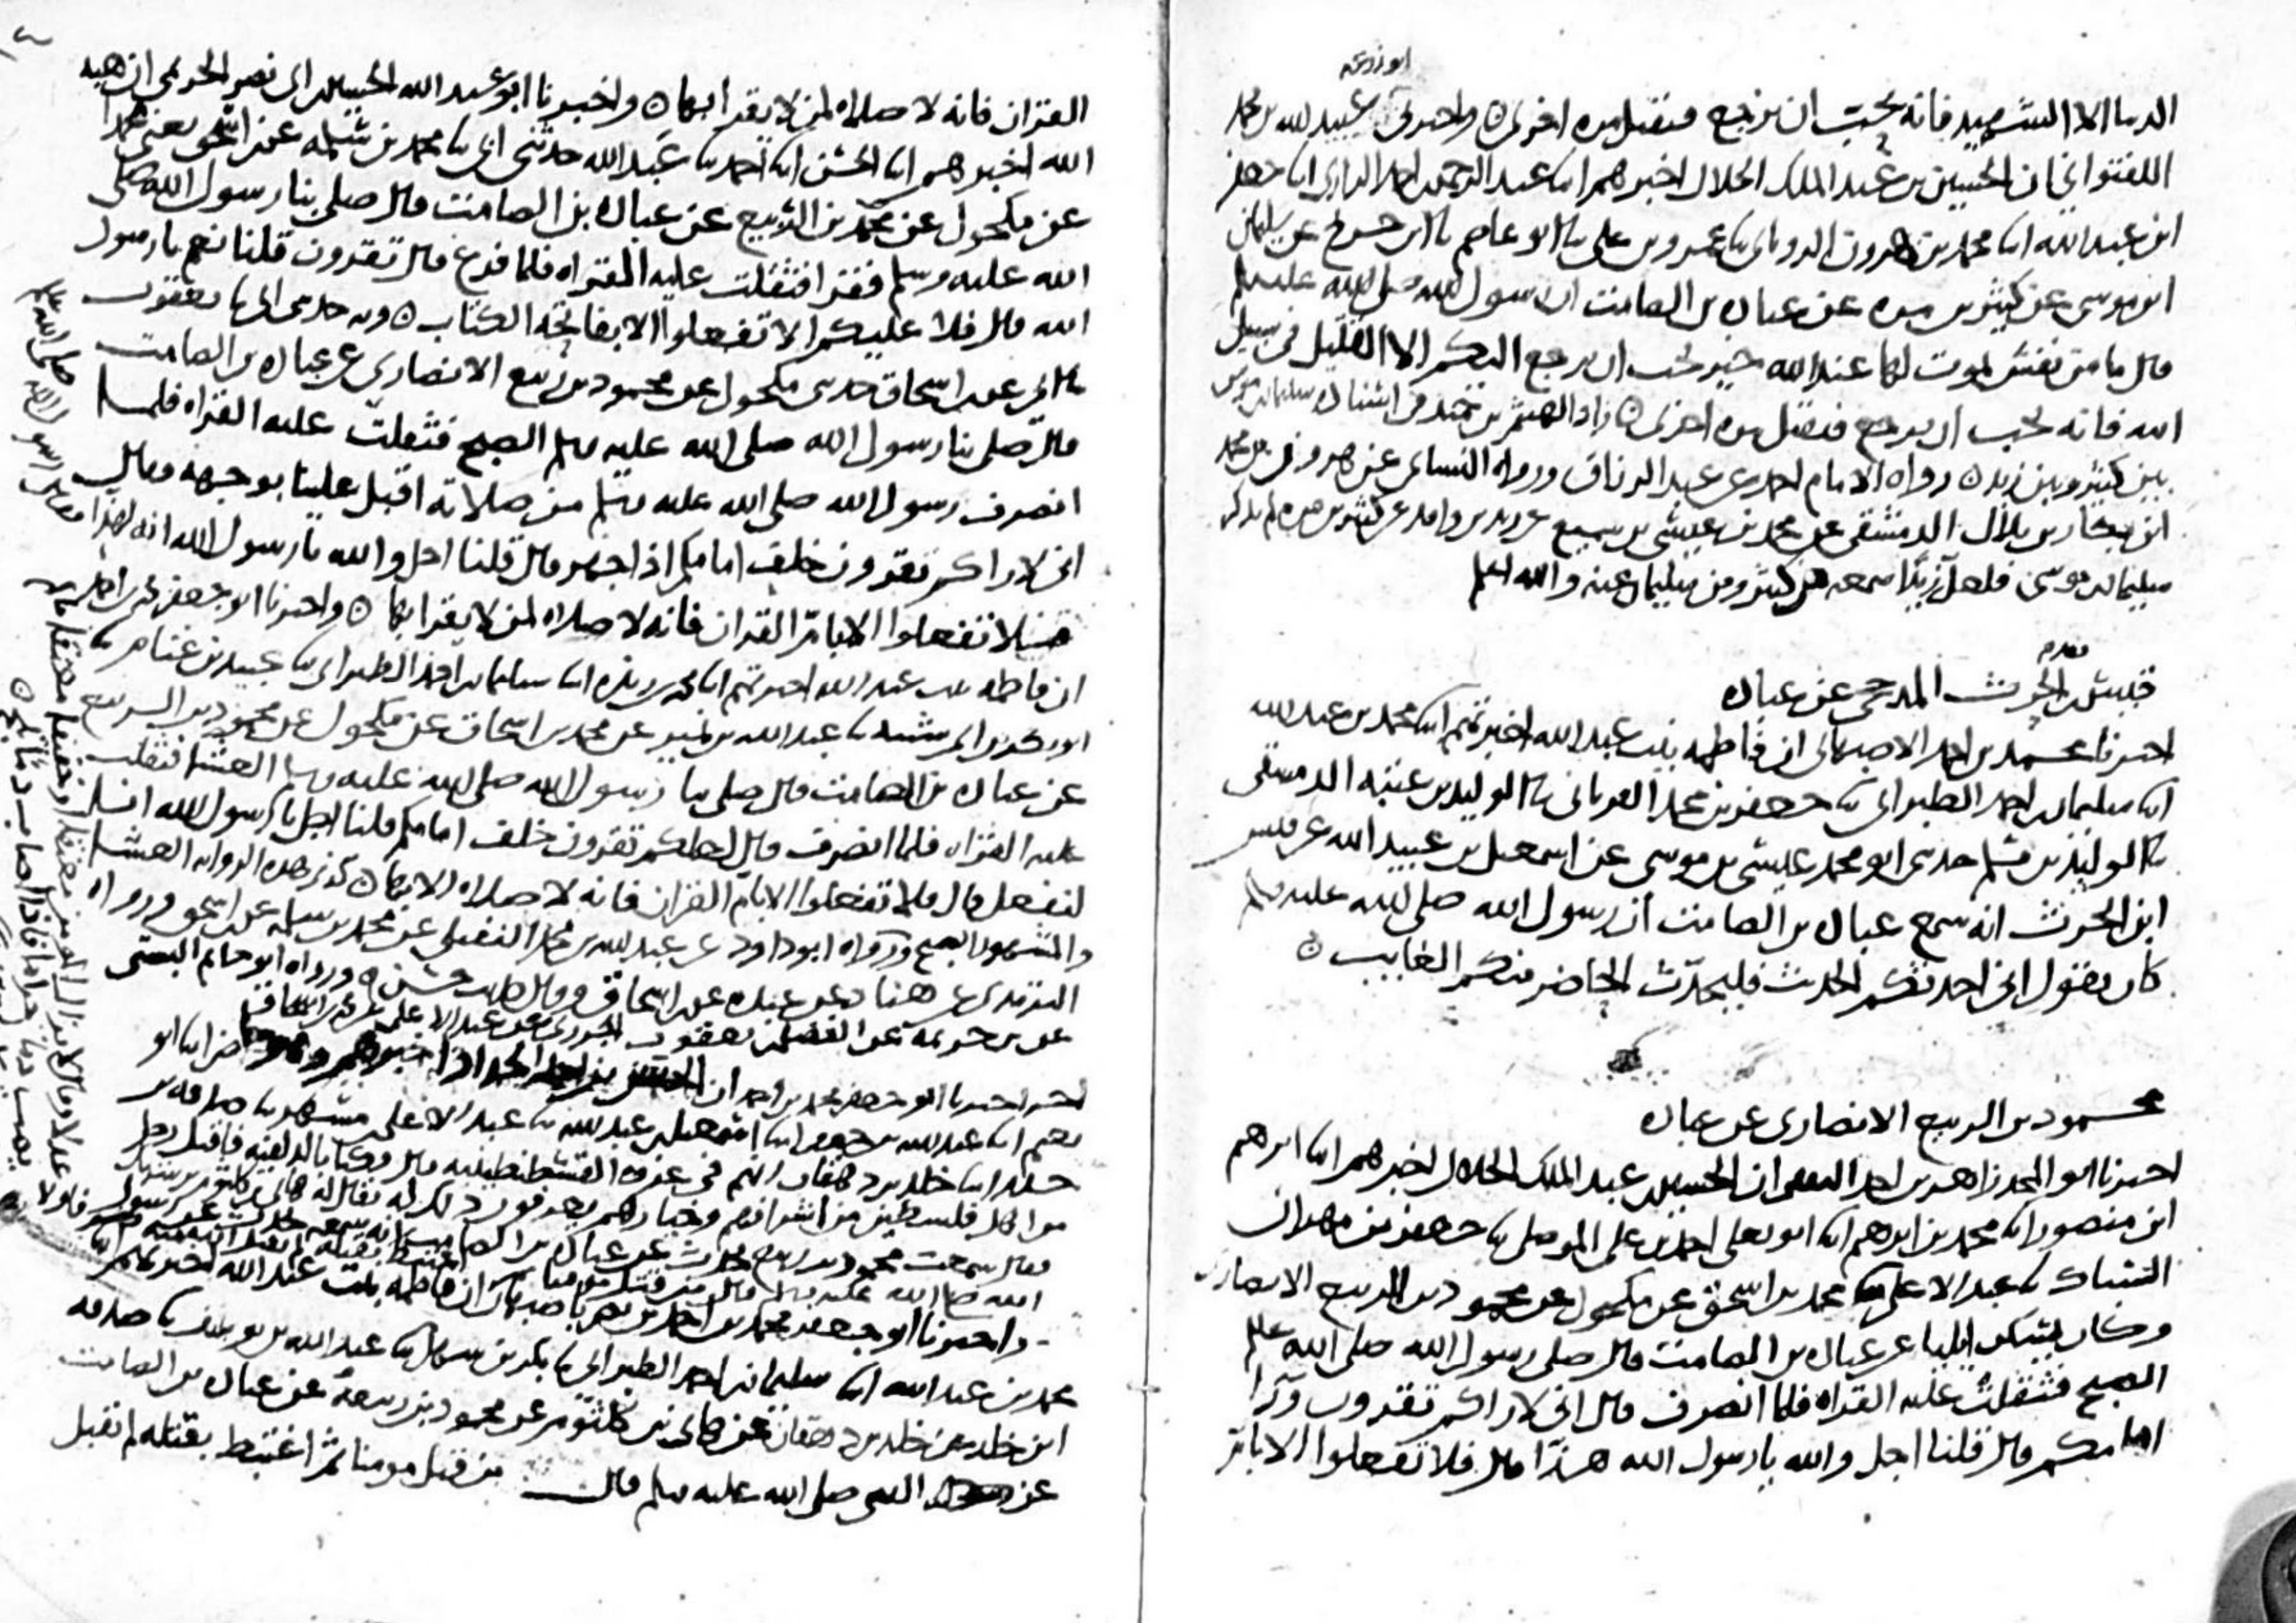 ابو زرعه
الدنيا الا الشهيد فانه يحب ان يرجع فيقتل مره اخرى ه واخبرني عبيد الله بن محمد
اللفتواني ان الحسين بن عبد الملك الخلال اخبرهم ابنا عبد الرحمن بن احمد الرازي ابنا جعفر
ابن عبد الله ابنا محمد بن هرون الروياني بنا عمرو بن علي بنا ابو عاصم بنا ابن جريج عن سليمان
ابن موسى عن كثير بن مره عن عباده بن الصامت ان رسول الله صلى الله عليه وسلم
قال ما من نفس تموت لها عند الله خير تحب ان ترجع اليكم الا القتيل في سبيل
الله فانه يحب ان يرجع فيقتل مره اخرى ه زاد الهيثم بن حميد في اسناده سليمان بن موسى
بين كثير وبين زيد ه رواه الامام احمد عن عبد الرزاق ورواه النسائي عن هرون بن محمد
ابن بكار بن بلال الدمشقي عن محمد بن عيسى بن سميع عن زيد بن واقد عن كثير بن مره لم يذكر
سليمان بن موسى فلعل زيدا سمعه من كثير ومن سليمان عنه والله اعلم
قيس بن الحرث المذحجي عن عباده
اخبرنا محمد بن احمد الاصبهاني ان فاطمه بنت عبد الله اخبرتهم ابنا محمد بن عبد الله
ابنا سليمان بن احمد الطبراني بنا جعفر بن محمد الفريابي بنا الوليد بن عتبه الدمشقي
بنا الوليد بن مسلم حدثني ابو محمد عيسى بن موسى عن اسمعيل بن عبيد الله عن قيس
ابن الحرث انه سمع عباده بن الصامت ان رسول الله صلى الله عليه وسلم
كان يقول اني احدثكم الحديث فليحدث الحاضر منكم الغايب ه
محمود بن الربيع الانصاري عن عباده
اخبرنا ابو المجد زاهر بن احمد الثقفي ان الحسين بن عبد الملك الخلال اخبرهم ابنا ابرهيم
ابن منصور ابنا محمد بن ابرهيم ابنا ابو يعلى احمد بن علي الموصلي بنا جعفر بن مهران
السباك بنا عبد الاعلى بنا محمد بن اسحق عن مكحول عن محمود بن الربيع الانصاري
وكان يسكن ايليا عن عباده بن الصامت قال صلى رسول الله صلى الله عليه وسلم
الصبح فثقلت عليه القراه فلما انصرف قال اني لاراكم تقرون وراء
امامكم قال قلنا اجل والله يا رسول الله هذا قال فلا تفعلوا الا بام
القران فانه لا صلاه لمن لا يقرا بها ه واخبرنا ابو عبد الله الحسين بن ابي نصر الحريمي ان هبه
الله اخبرهم ابنا الحسن ابنا احمد بنا عبد الله حدثني ابي بنا محمد بن سلمه عن ابن اسحق يعني محمدا
عن مكحول عن محمود بن الربيع عن عباده بن الصامت قال صلى بنا رسول الله صلى
الله عليه وسلم فقرا فثقلت عليه القراه فلما فرغ قال تقرون قلنا نعم يا رسول
الله قال فلا عليكم الا تفعلوا الا بفاتحه الكتاب ه وبه حدثني ابي بنا يعقوب
بنا ابي عن ابن اسحاق حدثني مكحول عن محمود بن ربيع الانصاري عن عباده بن الصامت
قال صلى بنا رسول الله صلى الله عليه وسلم الصبح فثقلت عليه القراه فلما
انصرف رسول الله صلى الله عليه وسلم من صلاته اقبل علينا بوجهه وقال
اني لاراكم تقرون خلف امامكم اذا جهر قال قلنا اجل والله يا رسول الله انه لهذا
لا تفعلوا الا بام القران فانه لا صلاه لمن لا يقرا بها ه واخبرنا ابو جعفر محمد بن احمد
ان فاطمه بنت عبد الله اخبرتهم ابنا محمد بن ريذه ابنا سليمان بن احمد الطبراني بنا عبيد بن غنام بنا
ابو بكر بن ابي شيبه بنا عبد الله بن نمير عن محمد بن اسحاق عن مكحول عن محمود بن الربيع
عن عباده بن الصامت قال صلى بنا رسول الله صلى الله عليه وسلم العشا فثقلت
عليه القراه فلما انصرف قال لعلكم تقرون خلف امامكم قلنا اجل يا رسول الله انا
لنفعل قال فلا تفعلوا الا بام القران فانه لا صلاه الا بها ه كذا في هذه الروايه العشا
والمشهور الصبح ورواه ابو داود عن عبد الله بن محمد النفيلي عن محمد بن سلمه عن ابن اسحق ورواه
الترمذي عن هناد عن عبده عن ابن اسحاق وقال حديث حسن ه ورواه ابو حاتم البستي
عن ابن خزيمه عن الفضل بن يعقوب الجزري عن عبد الاعلى عن محمد بن اسحاق
اخبرنا ابو جعفر محمد بن احمد ان ابنا ابو
نعيم ابنا عبد الله بن جعفر ابنا اسمعيل بن عبد الله بنا عبد الاعلى بن مسهر بنا صدقه بن
خالد ابنا خالد بن دهقان انهم في غزوه القسطنطينيه فاقبل رجل
من اهل فلسطين من اشرافهم وخيارهم يعرفون ذلك له يقال له هاني بن كلثوم
فقال سمعت محمود بن ربيع يحدث عن عباده بن الصامت انه سمعه يحدث عن رسول
الله صلى الله عليه وسلم قال من قتل مومنا
واخبرنا ابو جعفر محمد بن احمد بن نصر باصبهان ان فاطمه بنت عبد الله اخبرتهم ابنا
محمد بن عبد الله ابنا سليمان بن احمد الطبراني بنا بكر بن سهل بنا عبد الله بن يوسف بنا صدقه
ابن خالد عن خالد بن دهقان عن هاني بن كلثوم عن محمود بن ربيعه عن عباده بن الصامت
عن النبي صلى الله عليه وسلم قال من قتل مومنا ثم اغتبط بقتله لم يقبل